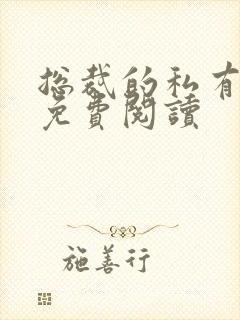 总裁的私有
免費閱讀
施善行